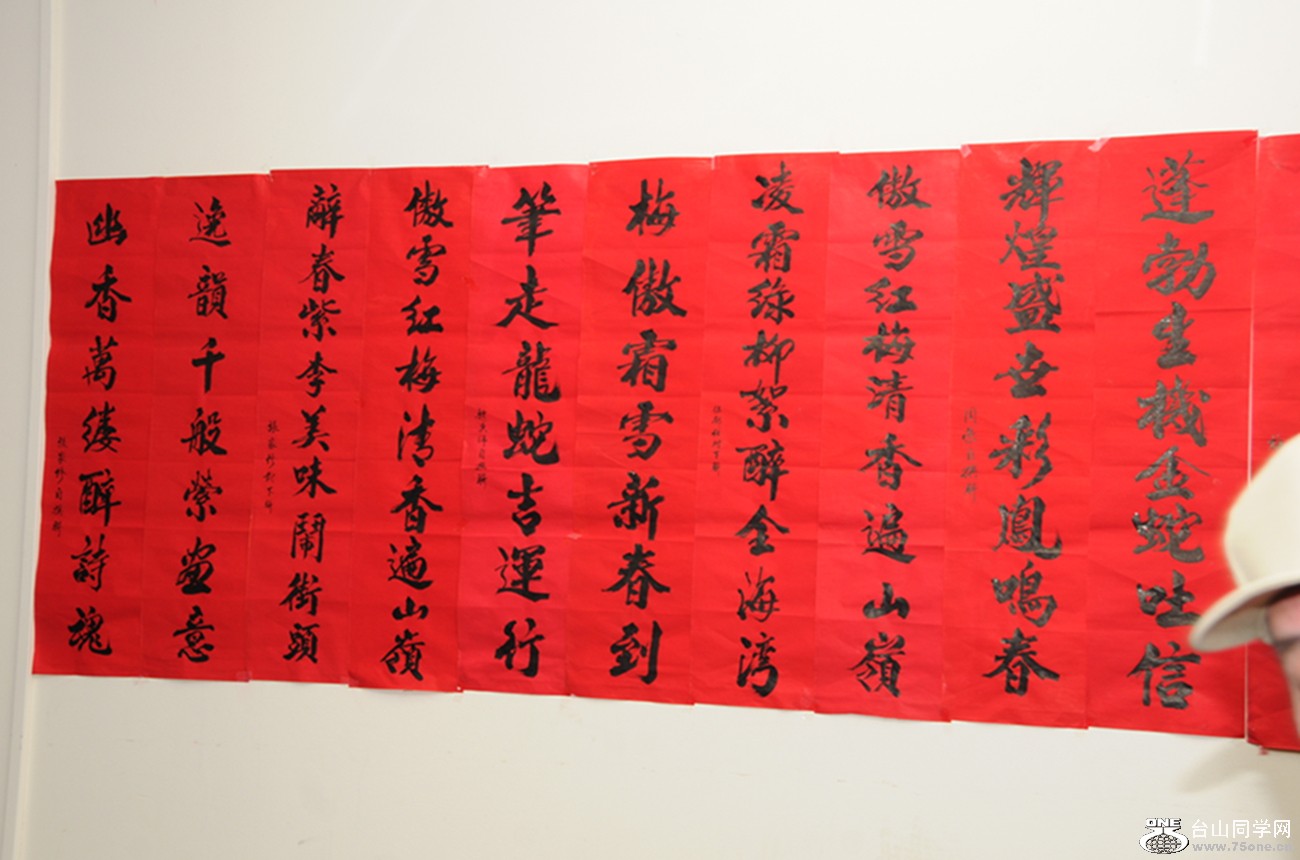 蓬勃生機金蛇吐信
輝煌盛世彩鳳鳴春
傲雪红梅清香遍山嶺
凌霜綠柳絮醉全海湾
梅傲霜雪新春到
筆走龍蛇吉運行
傲雪红梅清香遍山嶺
辭春紫李美味鬧街頭
逸韻千般縈畫意
幽香萬缕醉詩魂
ONE
台山同学网
www.75one.cn